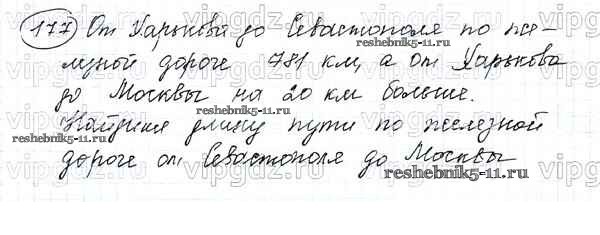 177 От Харькова до Севастополя по же-
лезной дороге 781 км, а от Харькова
до Москвы на 20 км больше.
Найдите длину пути по железной
дороге от Севастополя до Москвы
reshebnik5-11.ru
reshebnik5-11.ru
reshebnik5-11.ru
vipgdz.ru